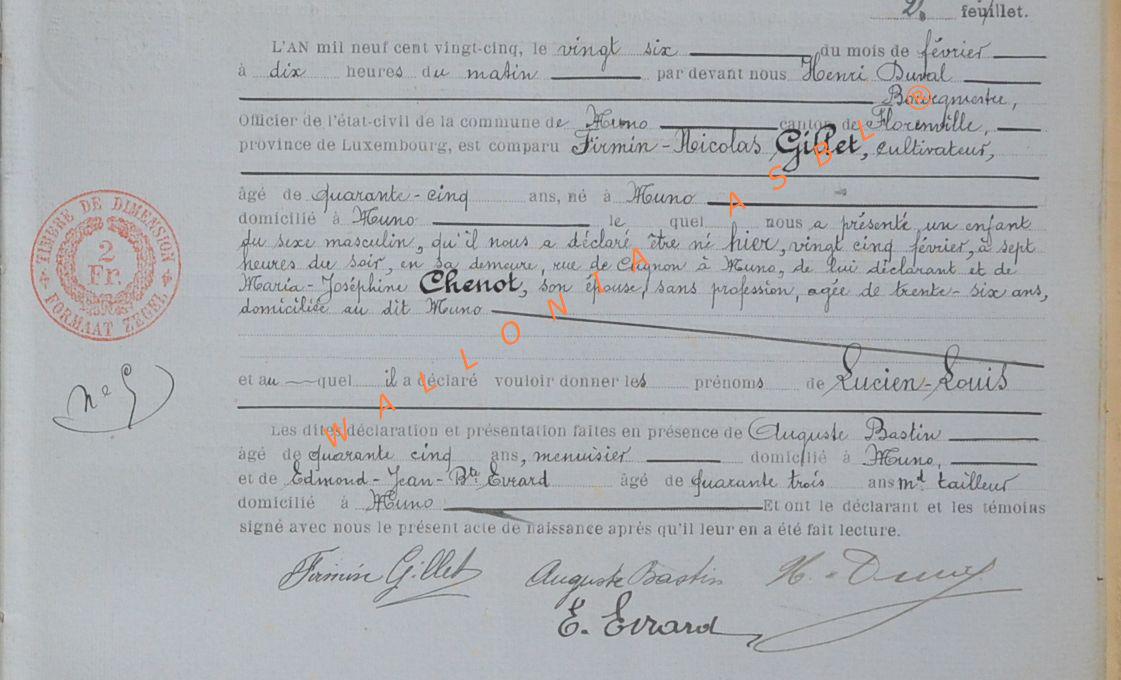 2. feuillet.
L'AN mil neuf cent vingt-cinq, le vingt six du mois de février
à dix heures du matin par devant nous Henri Duval
Bourgmestre,
Officier de l'état-civil de la commune de Muno canton de Florenville,
province de Luxembourg, est comparu Firmin-Nicolas Gillet, cultivateur,
âgé de quarante-cinq ans, né à Muno
domicilié à Muno le quel nous a présenté un enfant
du sexe masculin, qu'il nous a déclaré être né hier, vingt cinq février, à sept
heures du soir, en sa demeure, rue de Cugnon à Muno, de lui déclarant et de
Maria-Joséphine Chenot, son épouse, sans profession, agée de trente-six ans,
domiciliée au dit Muno
et au quel il a déclaré vouloir donner les prénoms de Lucien-Louis
Les dites déclaration et présentation faites en présence de Auguste Bastin
âgé de quarante cinq ans, menuisier domicilié à Muno,
et de Edmond-Jean-Bte Evrard âgé de quarante trois ans md tailleur
domicilié à Muno Et ont le déclarant et les témoins
signé avec nous le présent acte de naissance après qu'il leur en a été fait lecture.
Firmin Gillet Auguste Bastin H. Duval
E. Evrard
TIMBRE DE DIMENSION
2
Fr.
FORMAAT ZEGEL
n° 5
WALLONIA ASBL ®